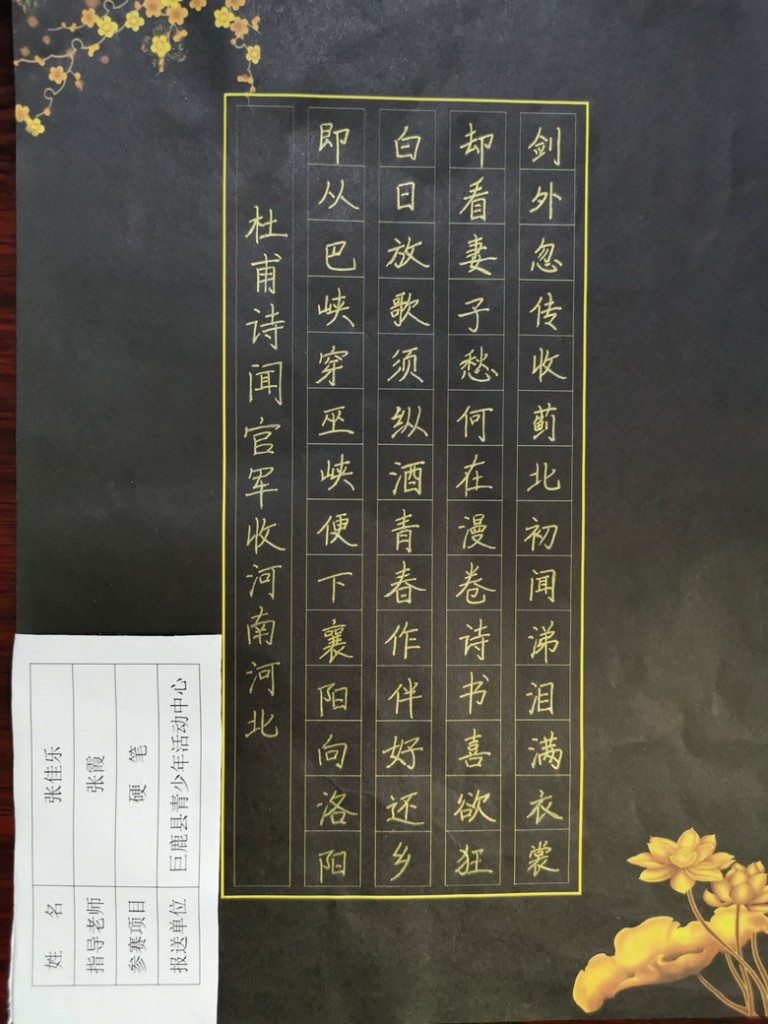 剑外忽传收蓟北初闻涕泪满衣裳
却看妻子愁何在漫卷诗书喜欲狂
白日放歌须纵酒青春作伴好还乡
即从巴峡穿巫峡便下襄阳向洛阳
杜甫诗闻官军收河南河北
姓 名 张佳乐
指导老师 张霞
参赛项目 硬 笔
报送单位 巨鹿县青少年活动中心